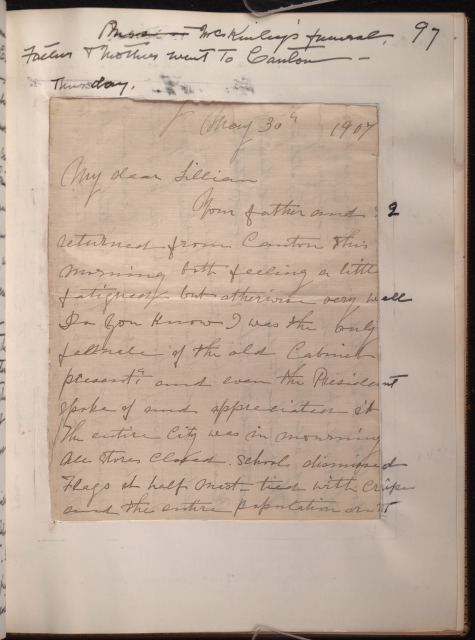 McKinley's funeral. 97
Father & Mother went to Canton —
Thursday.
May 30th 1907
My dear Lillian
Your father and I
returned from Canton this
morning both feeling a little
fatigued but otherwise very well
Do you know I was the only
female of the old Cabinet
present and even the President
spoke of and appreciated it
The entire City was in mourning
All Stores Closed. Schools dismissed
Flags at half mast tied with Crape
and the entire population out